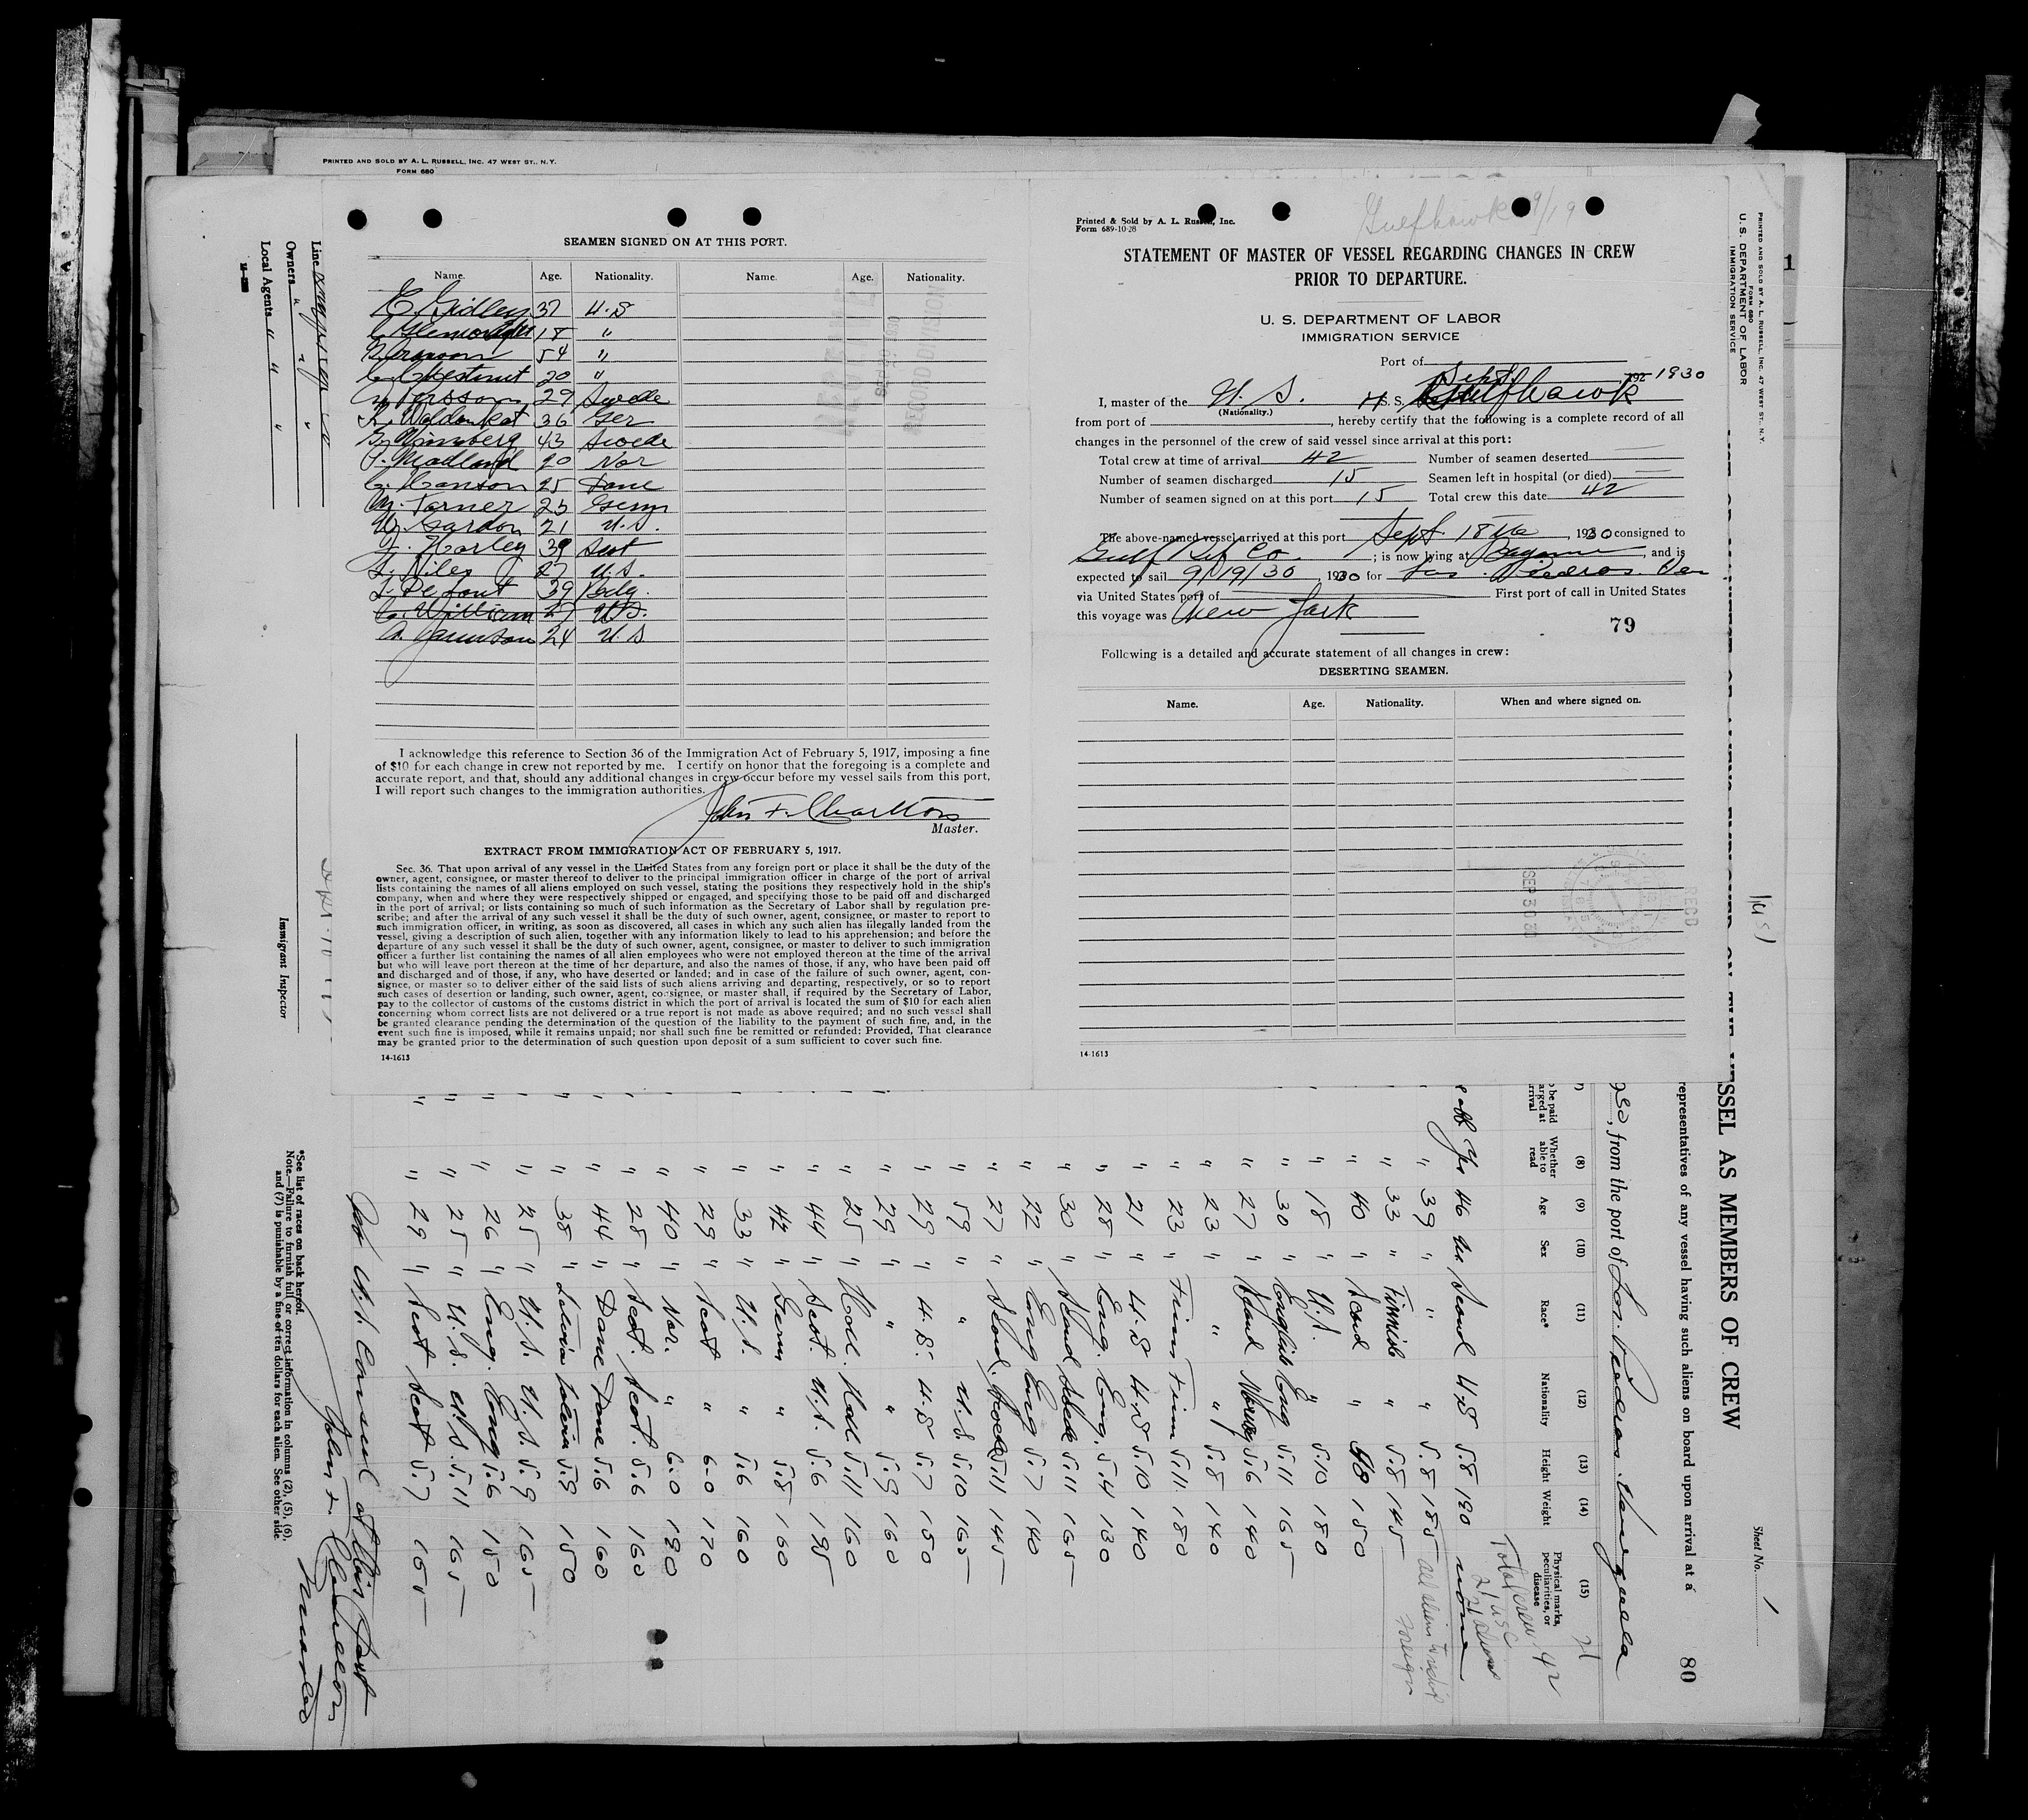 PRINTED AND SOLD BY A. L. RUSSELL, INC. 47 WEST ST., N.Y.
FORM 680
SEAMEN SIGNED ON AT THIS PORT.
Name. Age. Nationality. Name. Age. Nationality.
E. Gridley 37 U.S
18 "
54 "
C. Chestnut 20 "
Persson 29 Swede
36 Ger
43 Swede
P. Madland 20 Nor
C. Hanson 25 Dane
M. Torner 23 Germ
W. Gardon 21 U.S.
J. Harley 39 Scot
L. Niles 27 U.S.
39 Belg.
C. William 27 U.S.
A. 24 U.S
I acknowledge this reference to Section 36 of the Immigration Act of February 5, 1917, imposing a fine
of $10 for each change in crew not reported by me. I certify on honor that the foregoing is a complete and
accurate report, and that, should any additional changes in crew occur before my vessel sails from this port,
I will report such changes to the immigration authorities.
John F. Charlton
Master.
EXTRACT FROM IMMIGRATION ACT OF FEBRUARY 5, 1917.
Sec. 36. That upon arrival of any vessel in the United States from any foreign port or place it shall be the duty of the
owner, agent, consignee, or master thereof to deliver to the principal immigration officer in charge of the port of arrival
lists containing the names of all aliens employed on such vessel, stating the positions they respectively hold in the ship's
company, when and where they were respectively shipped or engaged, and specifying those to be paid off and discharged
in the port of arrival; or lists containing so much of such information as the Secretary of Labor shall by regulation pre-
scribe; and after the arrival of any such vessel it shall be the duty of such owner, agent, consignee, or master to report to
such immigration officer, in writing, as soon as discovered, all cases in which any such alien has illegally landed from the
vessel, giving a description of such alien, together with any information likely to lead to his apprehension; and before the
departure of any such vessel it shall be the duty of such owner, agent, consignee, or master to deliver to such immigration
officer a further list containing the names of all alien employees who were not employed thereon at the time of the arrival
but who will leave port thereon at the time of her departure, and also the names of those, if any, who have been paid off
and discharged and of those, if any, who have deserted or landed; and in case of the failure of such owner, agent, con-
signee, or master so to deliver either of the said lists of such aliens arriving and departing, respectively, or so to report
such cases of desertion or landing, such owner, agent, consignee, or master shall, if required by the Secretary of Labor,
pay to the collector of customs of the customs district in which the port of arrival is located the sum of $10 for each alien
concerning whom correct lists are not delivered or a true report is not made as above required; and no such vessel shall
be granted clearance pending the determination of the question of the liability to the payment of such fine, and, in the
event such fine is imposed, while it remains unpaid; nor shall such fine be remitted or refunded: Provided, That clearance
may be granted prior to the determination of such question upon deposit of a sum sufficient to cover such fine.
14-1613
Gulfhawk 9/19
Printed & Sold by A. L. Russell, Inc.
Form 689-10-28
STATEMENT OF MASTER OF VESSEL REGARDING CHANGES IN CREW
PRIOR TO DEPARTURE.
U. S. DEPARTMENT OF LABOR
IMMIGRATION SERVICE
Port of
Sept 192 1930
I, master of the U. S. S. S. Gulfhawk
(Nationality.)
from port of , hereby certify that the following is a complete record of all
changes in the personnel of the crew of said vessel since arrival at this port:
Total crew at time of arrival 42 Number of seamen deserted
Number of seamen discharged 15 Seamen left in hospital (or died)
Number of seamen signed on at this port 15 Total crew this date 42
The above-named vessel arrived at this port Sept 18th, 1930 consigned to
Gulf Ref Co ; is now lying at Bayonne, and is
expected to sail 9/19/30, 1930 for Las Piedras. Ven
via United States port of First port of call in United States
this voyage was New York
79
Following is a detailed and accurate statement of all changes in crew:
DESERTING SEAMEN.
Name. Age. Nationality. When and where signed on.
SEP 30
RECD
14-1613
PRINTED AND SOLD BY A. L. RUSSELL, INC. 47 WEST ST., N.Y.
FORM 680
U. S. DEPARTMENT OF LABOR
IMMIGRATION SERVICE
Sheet No. 1
80
SSEL AS MEMBERS OF CREW
representatives of any vessel having such aliens on board upon arrival at a
, from the port of Las Piedras. Venezuela
(8) (9) (10) (11) (12) (13) (14) (15)
Whether able to read Age Sex Race* Nationality Height Weight Physical marks, peculiarities, or disease
Total crew 42
21 USC
21 aliens
Yes 46 M Scand U.S 5.8 190 none
" 39 " " " 5.8 185
" 33 " Finnish " 5.8 145
" 40 " Scand " 150
" 18 " U.S. " 5.10 180
" 30 " English Eng 5.11 165
" 27 " Scand Norway 5.6 140
" 23 " " " 5.8 140
" 23 " Finn Finn 5.11 180
" 21 " U.S U.S 5.10 140
" 28 " Eng. Eng. 5.4 130
" 30 " Scand 5.11 165
" 22 " Eng Eng 5.7 140
" 27 " Scand. 5.11 145
" 59 " " U.S. 5.10 165
" 29 " U.S. U.S 5.7 150
" 29 " " " 5.9 160
" 25 " Holl. Holl 5.11 160
" 44 " Scot. U.S. 5.6 195
" 42 " Germ " 5.8 160
" 33 " U.S. " 5.6 160
" 29 " Scot " 6-0 170
" 40 " Nor. " 6-0 190
" 28 " Scot. Scot. 5.6 160
" 44 " Dane Dane 5.6 160
" 38 " Latvia Latvia 5.9 150
" 25 " U.S. U.S. 5.9 165
" 26 " Eng. Eng 5.6 150
" 25 " U.S. U.S. 5.11 165
" 29 " Scot Scot 5.7 165
No U.S. Consul at this Port
John F. Charlton
Master
*See list of races on back hereof.
Note.—Failure to furnish full or correct information in columns (2), (5), (6),
and (7) is punishable by a fine of ten dollars for each alien. See other side.
Line
Owners " "
Local Agents " " "
Immigrant Inspector